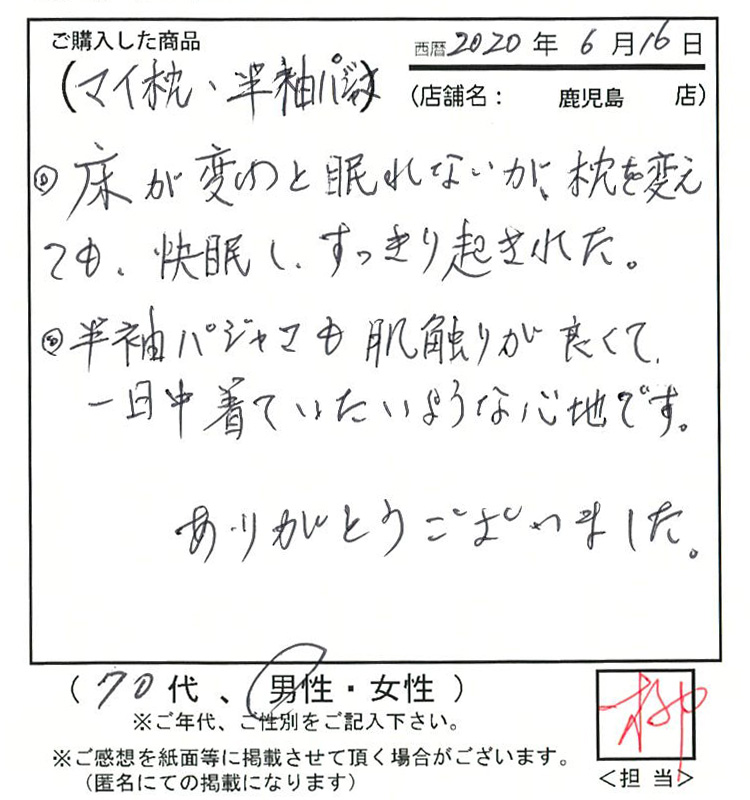 ご購入した商品
西暦2020年6月16日
(マイ枕、半袖パジャマ)
(店舗名: 鹿児島 店)
①床が変わると眠れないが、枕を変え
ても、快眠し、すっきり起きれた。
②半袖パジャマも肌触りが良くて、
一日中着ていたいような心地です。
ありがとうございました。
(70代、男性・女性)
※ご年代、ご性別をご記入下さい。
※ご感想を紙面等に掲載させて頂く場合がございます。
(匿名にての掲載になります)
柳
<担当>